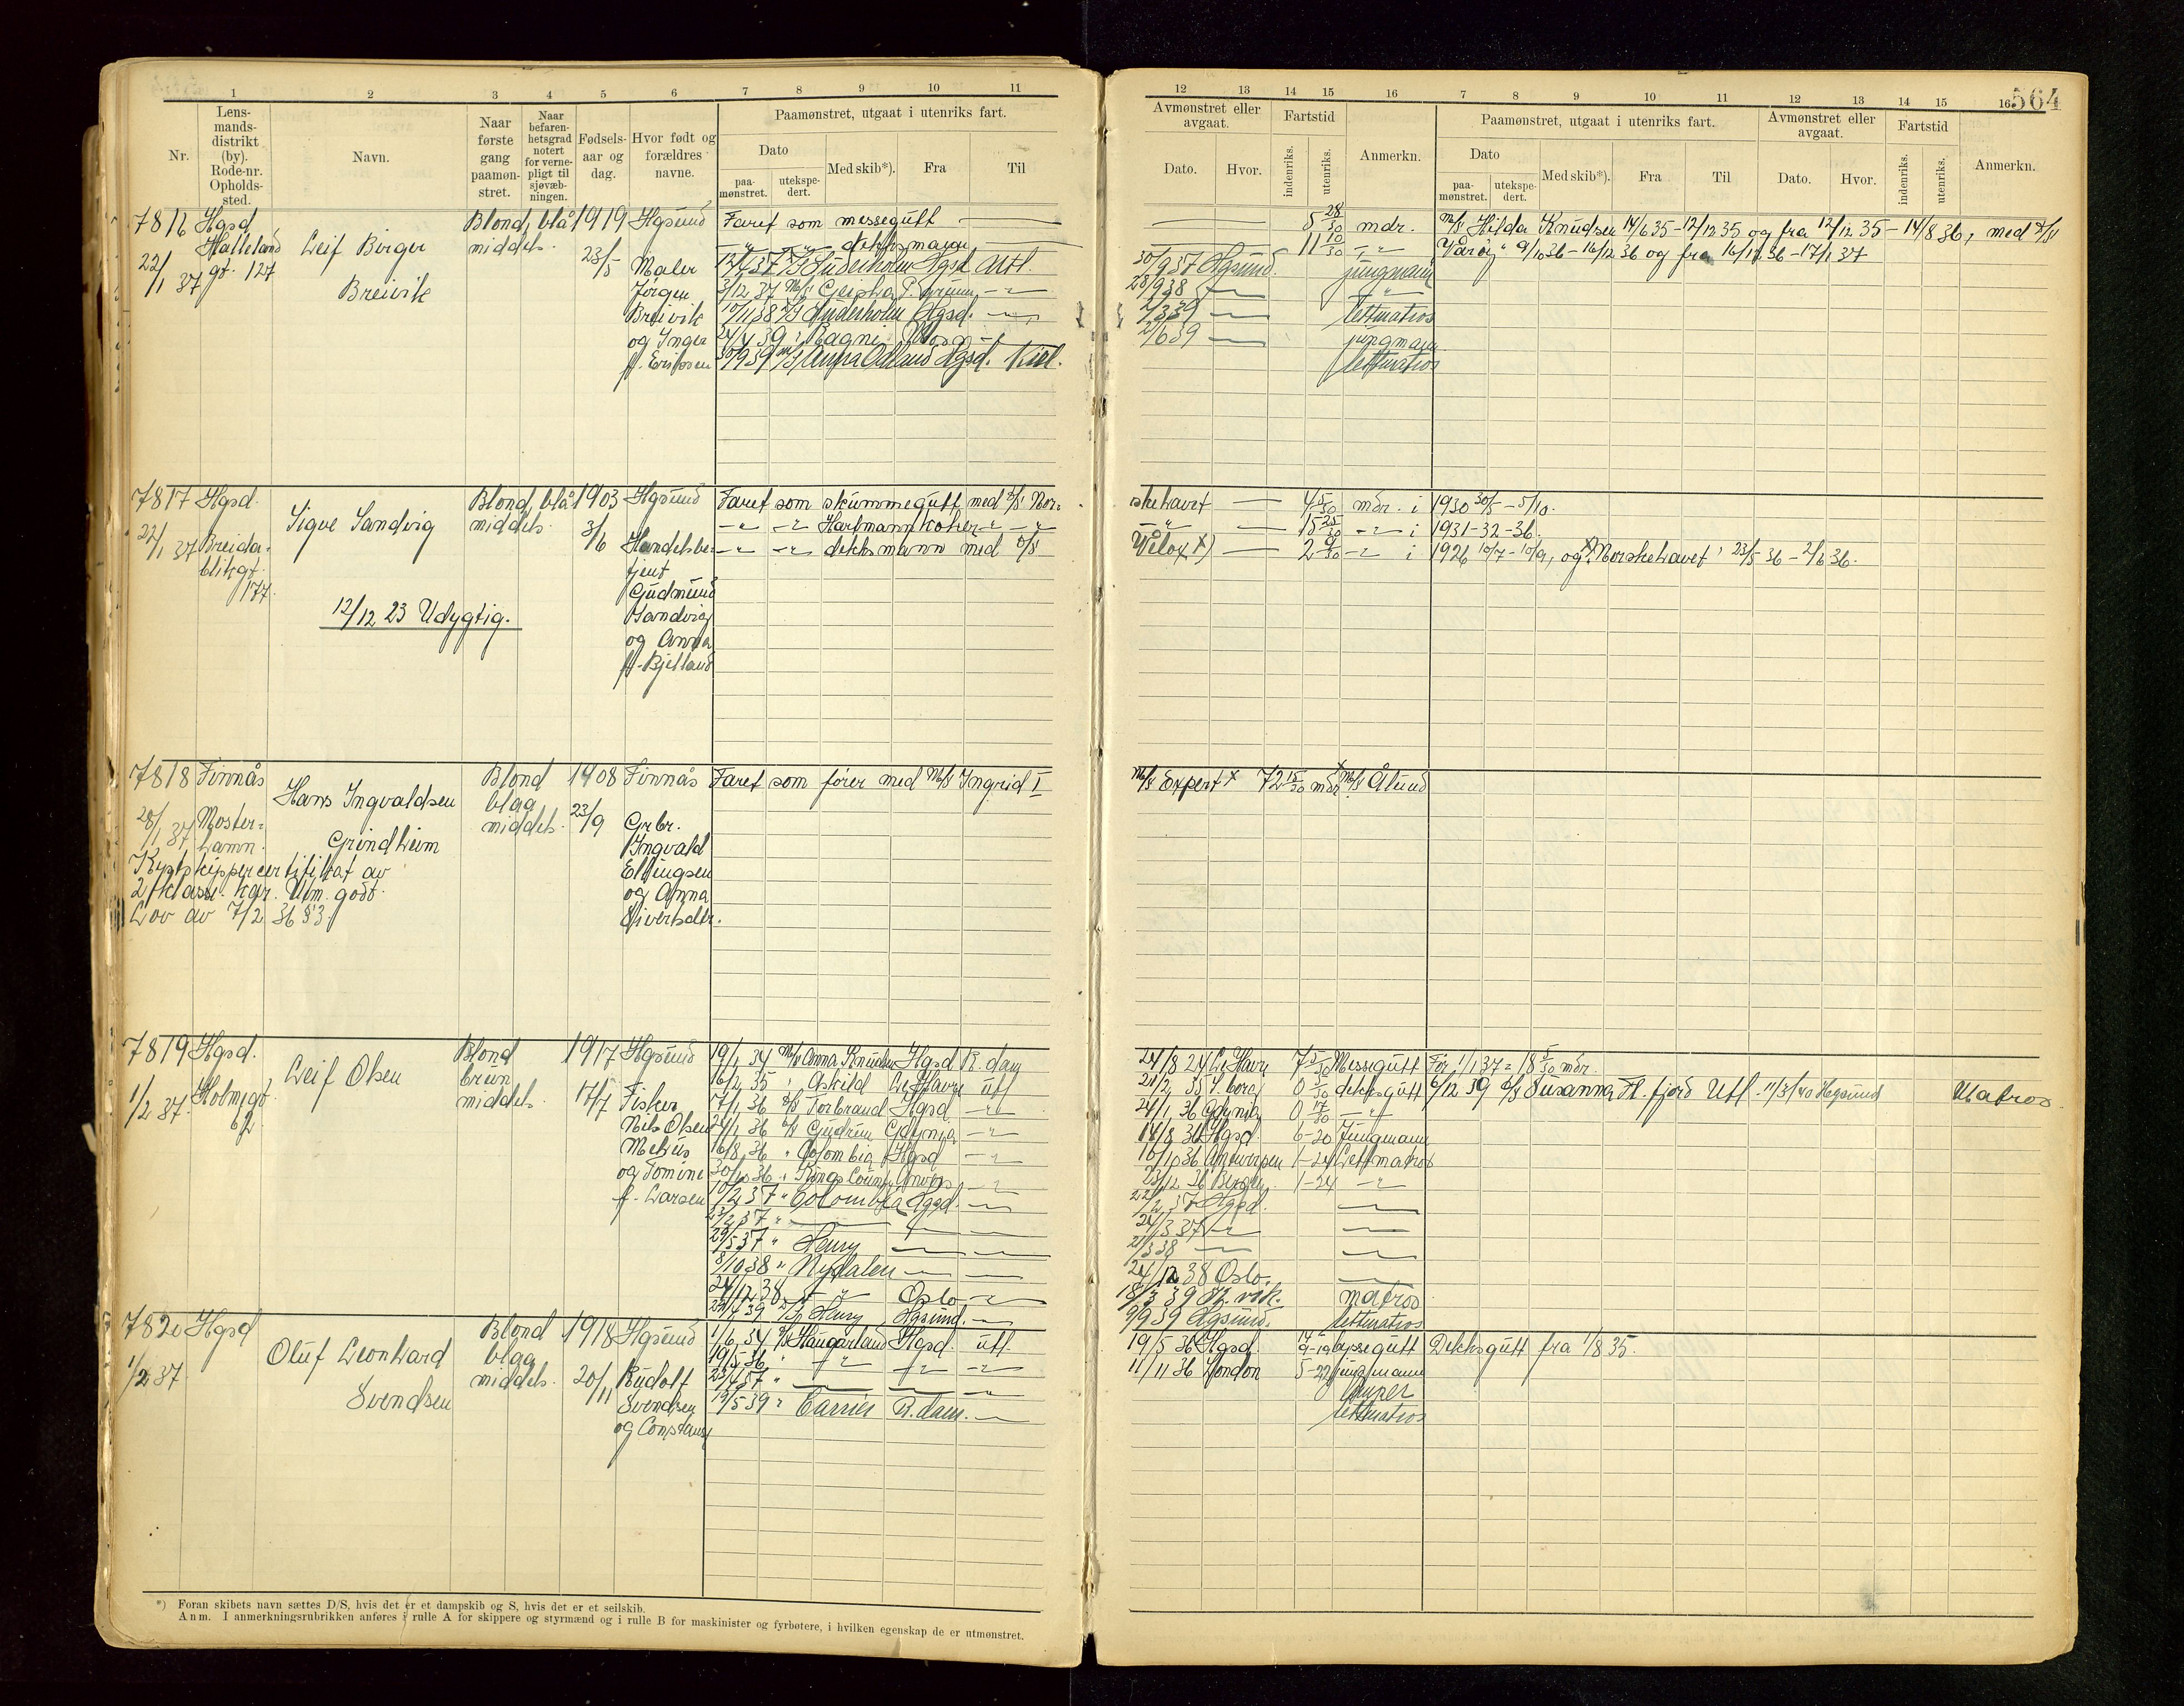 1 2 3 4 5 6 7 8 9 10 11
Nr.
Lens-
mands-
distrikt
(by).
Rode-nr.
Opholds-
sted.
Navn.
Naar
første
gang
paamøn-
stret.
Naar
befaren-
hetsgrad
notert
for verne-
pligt til
sjøvæb-
ningen.
Fødsels-
aar og
dag.
Hvor født og
forældres
navne.
Paamønstret, utgaat i utenriks fart.
Dato
paa-
mønstret.
utekspe-
dert.
Med skib*).
Fra
Til
7816 Hgsd
Halleland
gt. 127
22/1 37
Leif Birger
Breivik
Blond, blå
middels.
1919
23/5
Hgsund
Maler
Jørgen
Breivik
og Inger
f. Eriksen
Faret som messegutt
dekksmann
12/4 37 Suderholm Hgsd Utl.
3/12 37
10/11 38 Suderholm Hgsd.
24/4 39 Ragni
30/9 39 Anna Odland Hgsd. Kiel.
7817 Hgsd.
22/1 37 Breida-
blikgt.
177.
Sigve Sandvig
12/12 23 Udygtig.
Blond, blå
middels.
1903
3/6
Hgsund
Handelsbe-
tjent
Gudmund
Sandvig
og Anna
f. Bjelland
Faret som skummegutt med D/S Nor-
dekksmann med D/S
7818 Finnås
28/1 37 Moster-
hamn.
Hans Ingvaldsen
Grindheim
Kystskippercertifikat av
2 klasse. Kar. Um. godt.
Lov av 7/2 36 § 3.
Blond
blaa
middels.
1908
23/9
Finnås
Grbr.
Ingvald
Ellingsen
og Anna
Siversdtr.
Faret som fører med M/S Ingrid I
7819 Hgsd.
1/2 37. Holmegt.
62
Leif Olsen
Blond
brun
middels.
1917
17/7
Hgsund
Fisker
Nils Olsen
Mekus
og Tomine
f. Larsen
19/1 34 M/S Anna Knudsen Hgsd R.dam
16/2 35 " Askild Le Havre utl
17/1 36 D/S Torbrand Hgsd
24/1 36 D/S Gudrun Gdynia
16/8 36 " Colombia Hgsd
30/10 36 " Kings County Antwps
10/2 37 " Colombia Hgsd.
23/2 37 "
29/5 37 " Henry
8/10 38 " Nydalen
24/12 38 Oslo
22/4 39 Henry Hgsund.
7820 Hgsd
1/2 37
Oluf Leonhard
Svendsen
Blond
blaa
middels.
1918
20/11
Hgsund
Rudolf
Svendsen
og Constanse
1/6 34 D/S Haugarland Hgsd. utl.
19/5 36
23/4 37 "
19/5 39 " Carrier R.dam.
*) Foran skibets navn sættes D/S, hvis det er et dampskib og S, hvis det er et seilskib.
Anm. I anmerkningsrubrikken anføres i rulle A for skippere og styrmænd og i rulle B for maskinister og fyrbøtere, i hvilken egenskap de er utmønstret.
12 13 14 15 16 7 8 9 10 11 12 13 14 15 16
564
Avmønstret eller
avgaat.
Dato.
Hvor.
Fartstid
indenriks.
utenriks.
Anmerkn.
Paamønstret, utgaat i utenriks fart.
Dato
paa-
mønstret.
utekspe-
dert.
Med skib*).
Fra
Til
Avmønstret eller
avgaat.
Dato.
Hvor.
Fartstid
indenriks.
utenriks.
Anmerkn.
5 28/30 mdr. M/S Hilda Knudsen 14/6 35 - 12/12 35 og fra 12/12 35 - 14/8 36, med D/S
11 10/30 Varøy" 9/10 36 - 16/12 36 og fra 16/12 36 - 17/1 37
30/9 37 Hgsund. jungmann
28/9 38
2/3 39 lettmatros
2/6 39 jungmann
lettmatros
skehavet 4 5/30 mdr. i 1930 30/5 - 5/10.
15 25/30 i 1931-32-36.
Velox x) 2 9/30 i 1926 10/7 - 10/9, og x) "Norskehavet" 23/5 36 - 2/6 36.
M/S Expert x 72 15/30 mdr x M/S Ålund
24/8 24 Le Havre 7 5/30 Messegutt Før 1/1 37 = 18 5/30 mdr.
0 dekksgutt 6/12 39 D/S Susanna Fl. fjord Utl. 11/3/40 Hgsund Matros
24/1 36 Gdynia 0 17/30
14/8 36 Hgsd. 6-20 Jungmann
10/10 36 Antwerpen 1-24 Lettmatros
23/12 36 Bergen 1-24
22/2 37 Hgsd.
24/3 37
21/3 38
24/12 38 Oslo.
18/3 39 matros
9/9 39 Hgsund. lettmatros
19/5 36 Hgsd byssegutt Dekksgutt fra 1/8 35.
11/11 36 London 5-22 jungmann
lettmatros